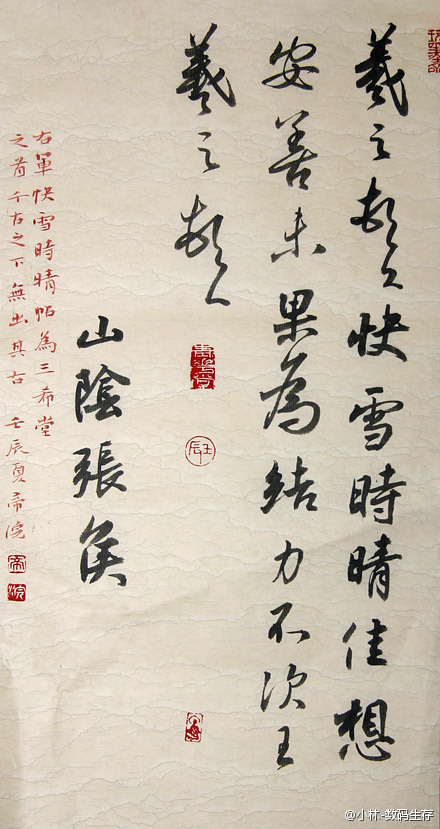 羲之頓首快雪時晴佳想
安善未果為結力不次王
羲之頓首
山陰張侯
右軍快雪時晴帖為三希堂
之首千古之下無出其右 壬辰夏
壬辰
@小林-教码生存